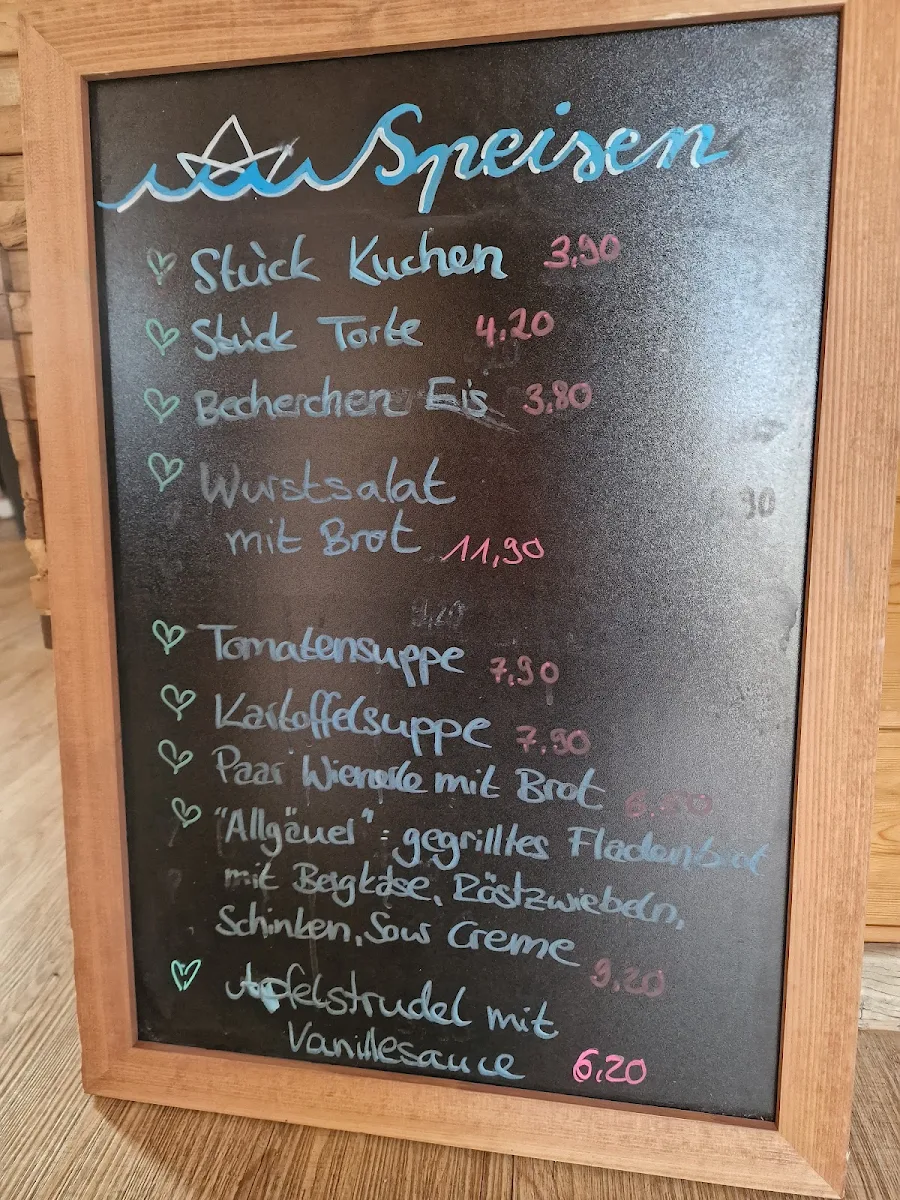 Speisen
Stück Kuchen 3,90
Stück Torte 4.20
Becherchen Eis 3,80
Wurstsalat
mit Brot 11,90
Tomatensuppe 7,90
Kartoffelsuppe 7,90
Paar Wienerle mit Brot
"Allgäuer": gegrilltes Fladenbrot
mit Bergkäse, Röstzwiebeln,
Schinken, Sour Creme
9,20
Apfelstrudel mit
Vanillesauce 6,20